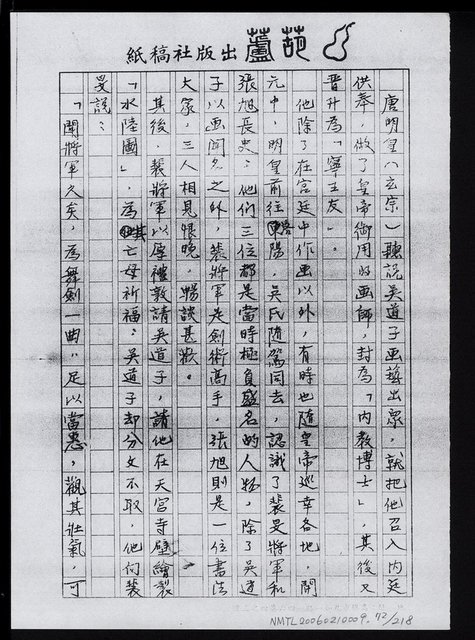 紙稿社版出蘆葫
唐明皇(玄宗)聽說吳道子画藝出眾,就把他召入內廷
供奉,做了皇帝御用的画師,封為「內教博士」,其後又
晉升為「寧王友」。
他除了在宮廷中作画以外,有時也隨皇帝巡幸各地,開
元中,明皇前往洛陽,吳氏隨駕同去,認識了裴旻將軍和
張旭長史;他們三位都是當時極負盛名的人物,除了吳道
子以画聞名之外,裴將軍是劍術高手,張旭則是一位書法
大家,三人相見恨晚,暢談甚歡。
其後,裴將軍以厚禮敦請吳道子,請他在天宮寺壁繪製
「水陸圖」,為其亡母祈福;吳道子却分文不取,他向裴
旻說:
「聞將軍久矣,為舞劍一曲,足以當惠,觀其壯氣,可
NMTL20060210009. 72/218